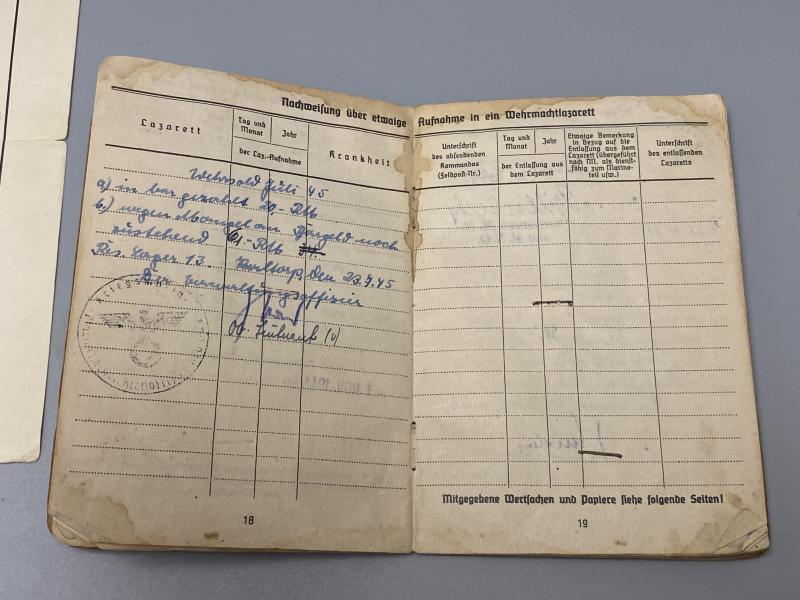 Nachweisung über etwaige
Lazarett
Tag und Monat
Jahr
der Laz.-Aufnahme
Krankheit
Wehrsold Juli 45
a) in bar gezahlt 20,- RM
b.) wegen Mangel an Bargeld noch
zustehend 61,- RM
Res. Lager 13. den 23.7.45
Der Verwaltungsoffizier
Leutnant (V)
18
Aufnahme in ein Wehrmachtlazarett
Unterschrift des absendenden Kommandos (Feldpost-Nr.)
Tag und Monat
Jahr
der Entlassung aus dem Lazarett
Etwaige Bemerkung in Bezug auf die Entlassung aus dem Lazarett (übergeführt nach NN. als dienstfähig zum Marineteil usw.)
Unterschrift des entlassenden Lazaretts
Mitgegebene Wertsachen und Papiere siehe folgende Seiten!
19